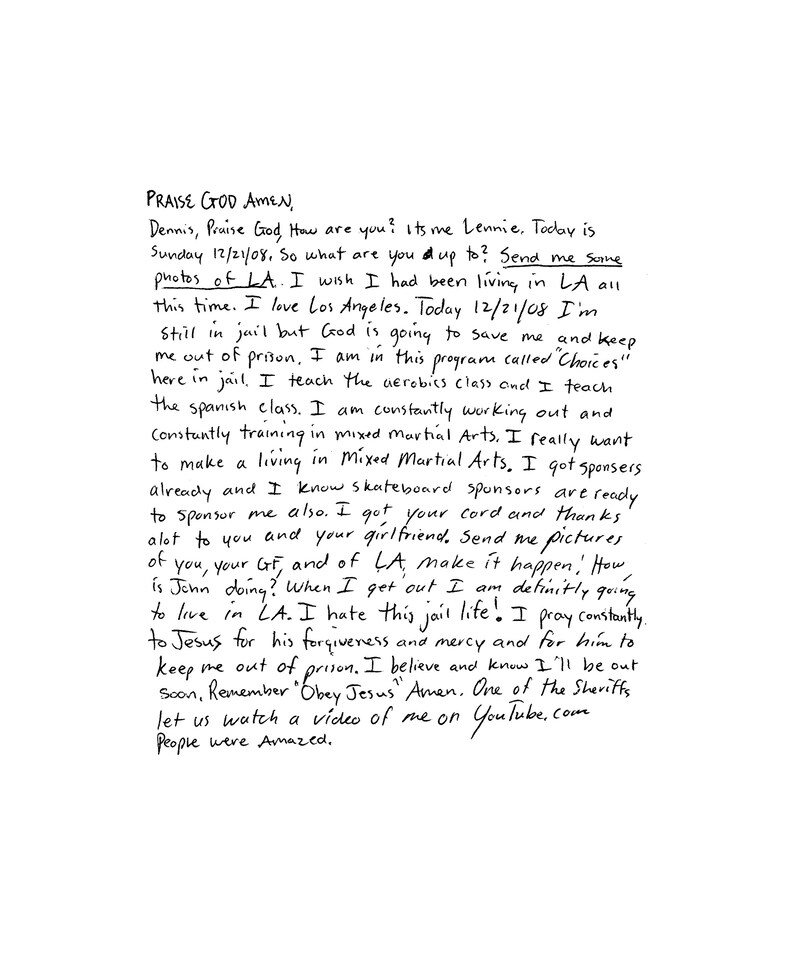 PRAISE GOD AMEN,
Dennis, Praise God, How are you? Its me Lennie. Today is
Sunday 12/21/08. So what are you up to? Send me some
photos of LA. I wish I had been living in LA all
this time. I love Los Angeles. Today 12/21/08 I'm
still in jail but God is going to save me and keep
me out of prison. I am in this program called "Choices"
here in jail. I teach the aerobics class and I teach
the spanish class. I am constantly working out and
constantly training in mixed martial Arts. I really want
to make a living in Mixed Martial Arts. I got sponsers
already and I know skateboard sponsors are ready
to sponsor me also. I got your card and thanks
alot to you and your girlfriend. Send me pictures
of you, your GF, and of LA, make it happen! How
is John doing? When I get out I am definitly going
to live in LA. I hate this jail life! I pray constantly
to Jesus for his forgiveness and mercy and for him to
keep me out of prison. I believe and know I'll be out
soon. Remember "Obey Jesus" Amen. One of the Sheriffs
let us watch a video of me on YouTube.com
People were Amazed.